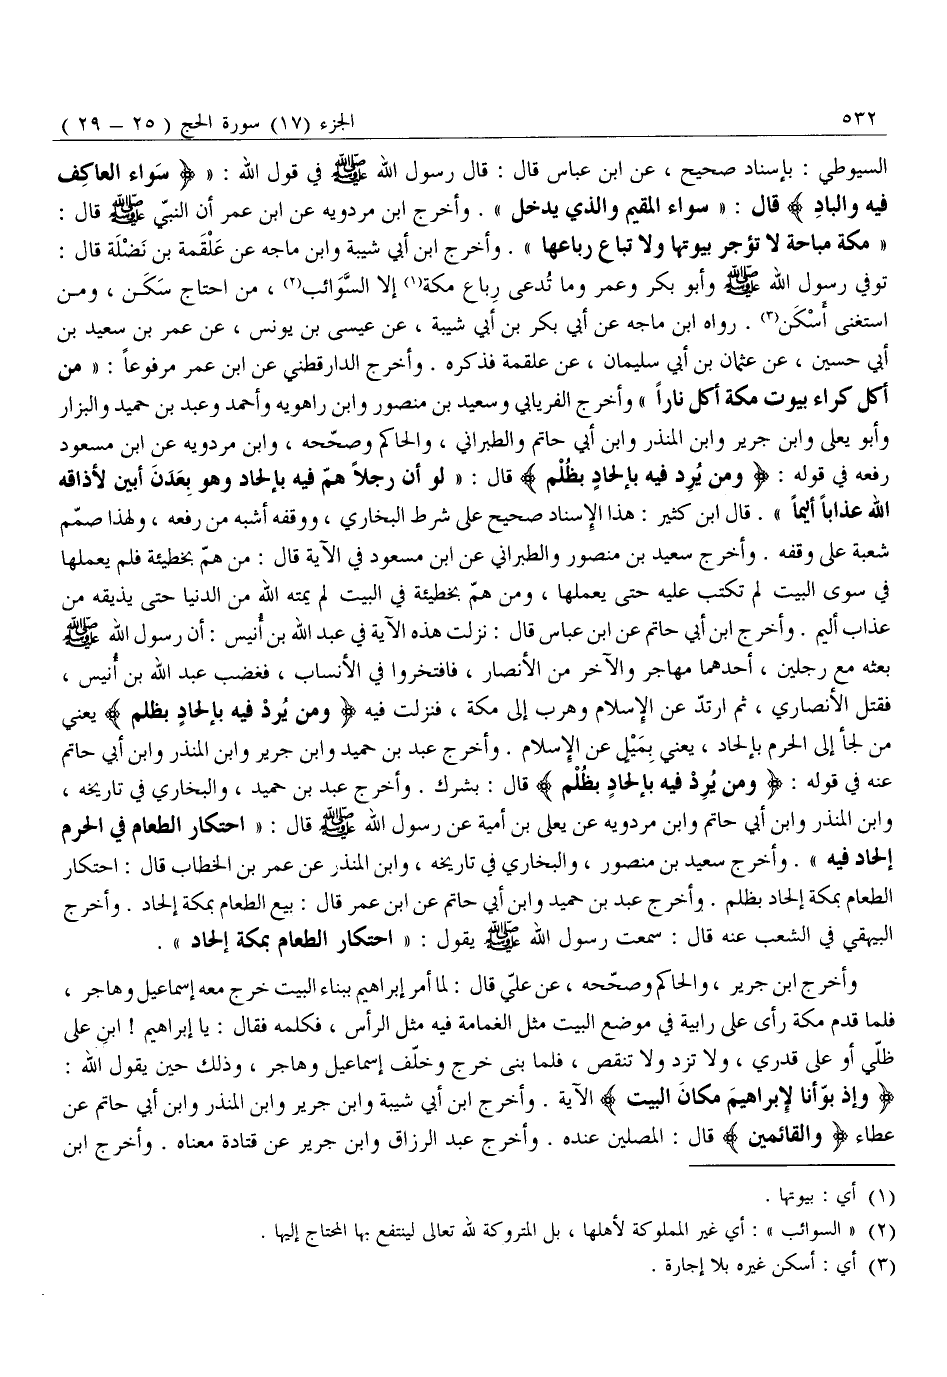 ٥٣٢ الجزء (١٧) سورة الحج ( ٢٥ – ٢٩ )
السيوطي : بإسناد صحيح ، عن ابن عباس قال : قال رسول الله ﷺ في قول الله : « ﴿ سَواء العاكِف
فيه والبادِ ﴾ قال : « سواء المقيم والذي يدخل » . وأخرج ابن مردويه عن ابن عمر أن النبيّ ﷺ قال :
« مكة مباحة لا تؤجر بيوتها ولا تباع رباعها » . وأخرج ابن أبي شيبة وابن ماجه عن عَلْقَمة بن نَضْلَة قال :
توفي رسول الله ﷺ وأبو بكر وعمر وما تُدعى رِباع مكة(١) إلا السَّوَائب(٢) ، من احتاج سَكَن ، ومن
استغنى أَسْكَن(٣) . رواه ابن ماجه عن أبي بكر بن أبي شيبة ، عن عيسى بن يونس ، عن عمر بن سعيد بن
أبي حسين ، عن عثمان بن أبي سليمان ، عن علقمة فذكره . وأخرج الدارقطني عن ابن عمر مرفوعاً : « من
أكل كراء بيوت مكة أكل ناراً » وأخرج الفريابي وسعيد بن منصور وابن راهويه وأحمد وعبد بن حميد والبزار
وأبو يعلى وابن جرير وابن المنذر وابن أبي حاتم والطبراني ، والحاكم وصحّحه ، وابن مردويه عن ابن مسعود
رفعه في قوله : ﴿ ومن يُرِد فيه بإلحادٍ بظُلْم ﴾ قال : « لو أن رجلاً همّ فيه بإلحاد وهو بِعَدَنَ أبين لأذاقه
الله عذاباً أليماً » . قال ابن كثير : هذا الإسناد صحيح على شرط البخاري ، ووقفه أشبه من رفعه ، ولهذا صمّم
شعبة على وقفه . وأخرج سعيد بن منصور والطبراني عن ابن مسعود في الآية قال : من همّ بخطيئة فلم يعملها
في سوى البيت لم تكتب عليه حتى يعملها ، ومن همّ بخطيئة في البيت لم يمته الله من الدنيا حتى يذيقه من
عذاب أليم . وأخرج ابن أبي حاتم عن ابن عباس قال : نزلت هذه الآية في عبد الله بن أُنيس : أن رسول الله ﷺ
بعثه مع رجلين ، أحدهما مهاجر والآخر من الأنصار ، فافتخروا في الأنساب ، فغضب عبد الله بن أُنيس ،
فقتل الأنصاري ، ثم ارتدّ عن الإسلام وهرب إلى مكة ، فنزلت فيه ﴿ ومن يُردْ فيه بإلحادٍ بظلم ﴾ يعني
من لجأ إلى الحرم بإلحاد ، يعني بِمَيْلٍ عن الإسلام . وأخرج عبد بن حميد وابن جرير وابن المنذر وابن أبي حاتم
عنه في قوله : ﴿ ومن يُرِدْ فيه بإلحادٍ بظُلْم ﴾ قال : بشرك . وأخرج عبد بن حميد ، والبخاري في تاريخه ،
وابن المنذر وابن أبي حاتم وابن مردويه عن يعلى بن أمية عن رسول الله ﷺ قال : « احتكار الطعام في الحرم
إلحاد فيه » . وأخرج سعيد بن منصور ، والبخاري في تاريخه ، وابن المنذر عن عمر بن الخطاب قال : احتكار
الطعام بمكة إلحاد بظلم . وأخرج عبد بن حميد وابن أبي حاتم عن ابن عمر قال : بيع الطعام بمكة إلحاد . وأخرج
البيهقي في الشعب عنه قال : سمعت رسول الله ﷺ يقول : « احتكار الطعام بمكة إلحاد » .
وأخرج ابن جرير ، والحاكم وصحّحه ، عن عليّ قال : لما أمر إبراهيم ببناء البيت خرج معه إسماعيل وهاجر ،
فلما قدم مكة رأى على رابية في موضع البيت مثل الغمامة فيه مثل الرأس ، فكلمه فقال : يا إبراهيم ! ابنِ على
ظلّي أو على قدري ، ولا تزد ولا تنقص ، فلما بنى خرج وخلّف إسماعيل وهاجر ، وذلك حين يقول الله :
﴿ وإذ بوّأنا لإبراهيمَ مكانَ البيت ﴾ الآية . وأخرج ابن أبي شيبة وابن جرير وابن المنذر وابن أبي حاتم عن
عطاء ﴿ والقائمين ﴾ قال : المصلين عنده . وأخرج عبد الرزاق وابن جرير عن قتادة معناه . وأخرج ابن
(١) أي : بيوتها .
(٢) « السوائب » : أي غير المملوكة لأهلها ، بل المتروكة لله تعالى لينتفع بها المحتاج إليها .
(٣) أي : أسكن غيره بلا إجارة .